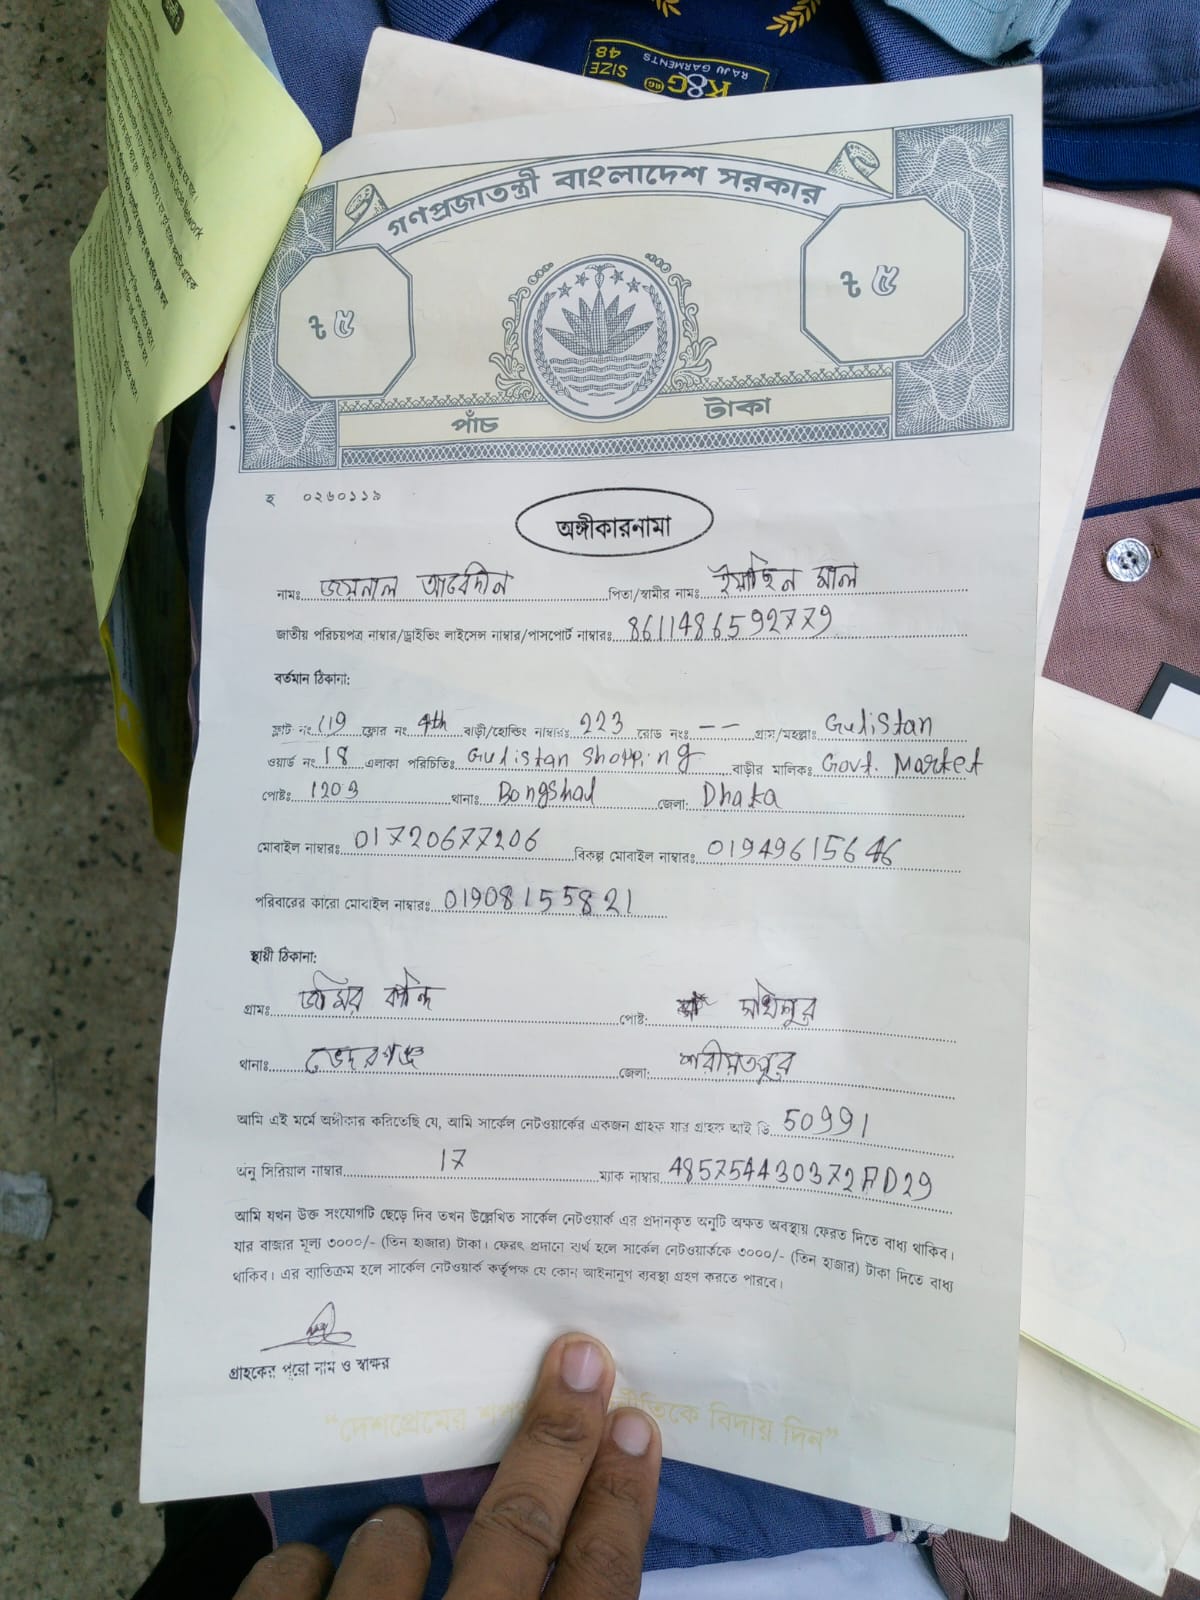 K&G
RAJU GARMENTS
SIZE
48
Circle Network
গণপ্রজাতন্ত্রী বাংলাদেশ সরকার
৳ ৫
৳ ৫
পাঁচ টাকা
হ ০২৬০১১৯
অঙ্গীকারনামা
নামঃ জয়নাল আবেদীন পিতা/স্বামীর নামঃ ইয়াছিন মাল
জাতীয় পরিচয়পত্র নাম্বার/ড্রাইভিং লাইসেন্স নাম্বার/পাসপোর্ট নাম্বারঃ 8611486592779
বর্তমান ঠিকানা:
ফ্লাট নং 119 ফ্লোর নং 4th বাড়ী/হোল্ডিং নাম্বারঃ 223 রোড নংঃ -- গ্রাম/মহল্লাঃ Gulistan
ওয়ার্ড নং 18 এলাকা পরিচিতিঃ Gulistan Shopping বাড়ীর মালিকঃ Govt. Market
পোষ্টঃ 1203 থানাঃ Bongshal জেলা: Dhaka
মোবাইল নাম্বারঃ 01720677206 বিকল্প মোবাইল নাম্বারঃ 01949615646
পরিবারের কারো মোবাইল নাম্বারঃ 01908155821
স্থায়ী ঠিকানা:
গ্রামঃ জমির কান্দি পোষ্ট: সখিপুর
থানাঃ ভেদরগঞ্জ জেলা: শরীয়তপুর
আমি এই মর্মে অঙ্গীকার করিতেছি যে, আমি সার্কেল নেটওয়ার্কের একজন গ্রাহক যার গ্রাহক আই ডি 50991
অনু সিরিয়াল নাম্বার 17 ম্যাক নাম্বার 485754430372AD29
আমি যখন উক্ত সংযোগটি ছেড়ে দিব তখন উল্লেখিত সার্কেল নেটওয়ার্ক এর প্রদানকৃত অনুটি অক্ষত অবস্থায় ফেরত দিতে বাধ্য থাকিব।
যার বাজার মূল্য ৩০০০/- (তিন হাজার) টাকা। ফেরৎ প্রদানে ব্যর্থ হলে সার্কেল নেটওয়ার্ককে ৩০০০/- (তিন হাজার) টাকা দিতে বাধ্য
থাকিব। এর ব্যতিক্রম হলে সার্কেল নেটওয়ার্ক কর্তৃপক্ষ যে কোন আইনানুগ ব্যবস্থা গ্রহণ করতে পারবে।
গ্রাহকের পুরো নাম ও স্বাক্ষর
“দেশপ্রেমের বিদায় দিন”